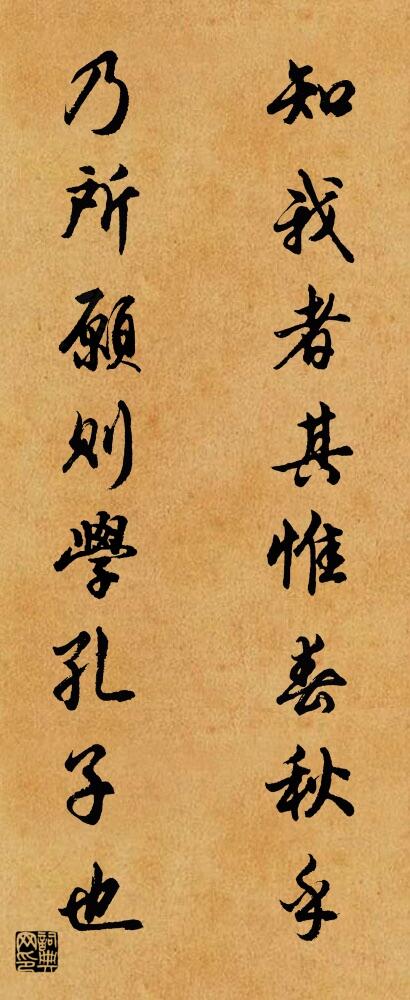 知我者其惟春秋乎
乃所願則學孔子也
詞典网印